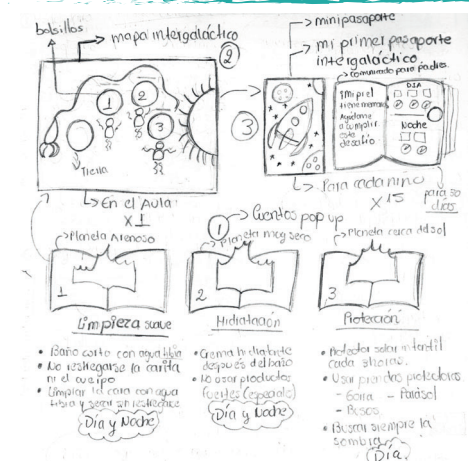 bolsillos
mapa intergaláctico
2
1
2
3
Tierra
En el Aula
x1
minipasaporte
mi primer pasaporte
intergaláctico
comunicado para padres
3
¡mi piel
tiene memoria
Ayúdame
a cumplir
este
desafío
DIA
Noche
Para cada niño
x15
para 30
días
1
Cuentos pop up
Planeta Arenoso
1
Limpieza suave
• Baño corto con agua tibia
• No restregarse la carita
ni el cuerpo
• Limpiar la cara con agua
tibia y secar sin restregarse
Día y Noche
Planeta muy seco
2
Hidratación
• Crema hidratante
después del baño
• No usar productos
fuertes
Día y Noche
Planeta cerca del sol
3
Protección
• Protector solar infantil
cada 2 horas.
• Usar prendas protectoras
- Gorra - Parasol
- Buzos
• Buscar siempre la
sombra
Día